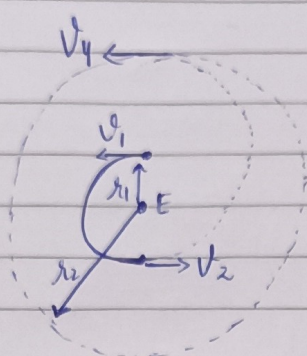 v₄
v₁
r₁ E
r₂ v₂